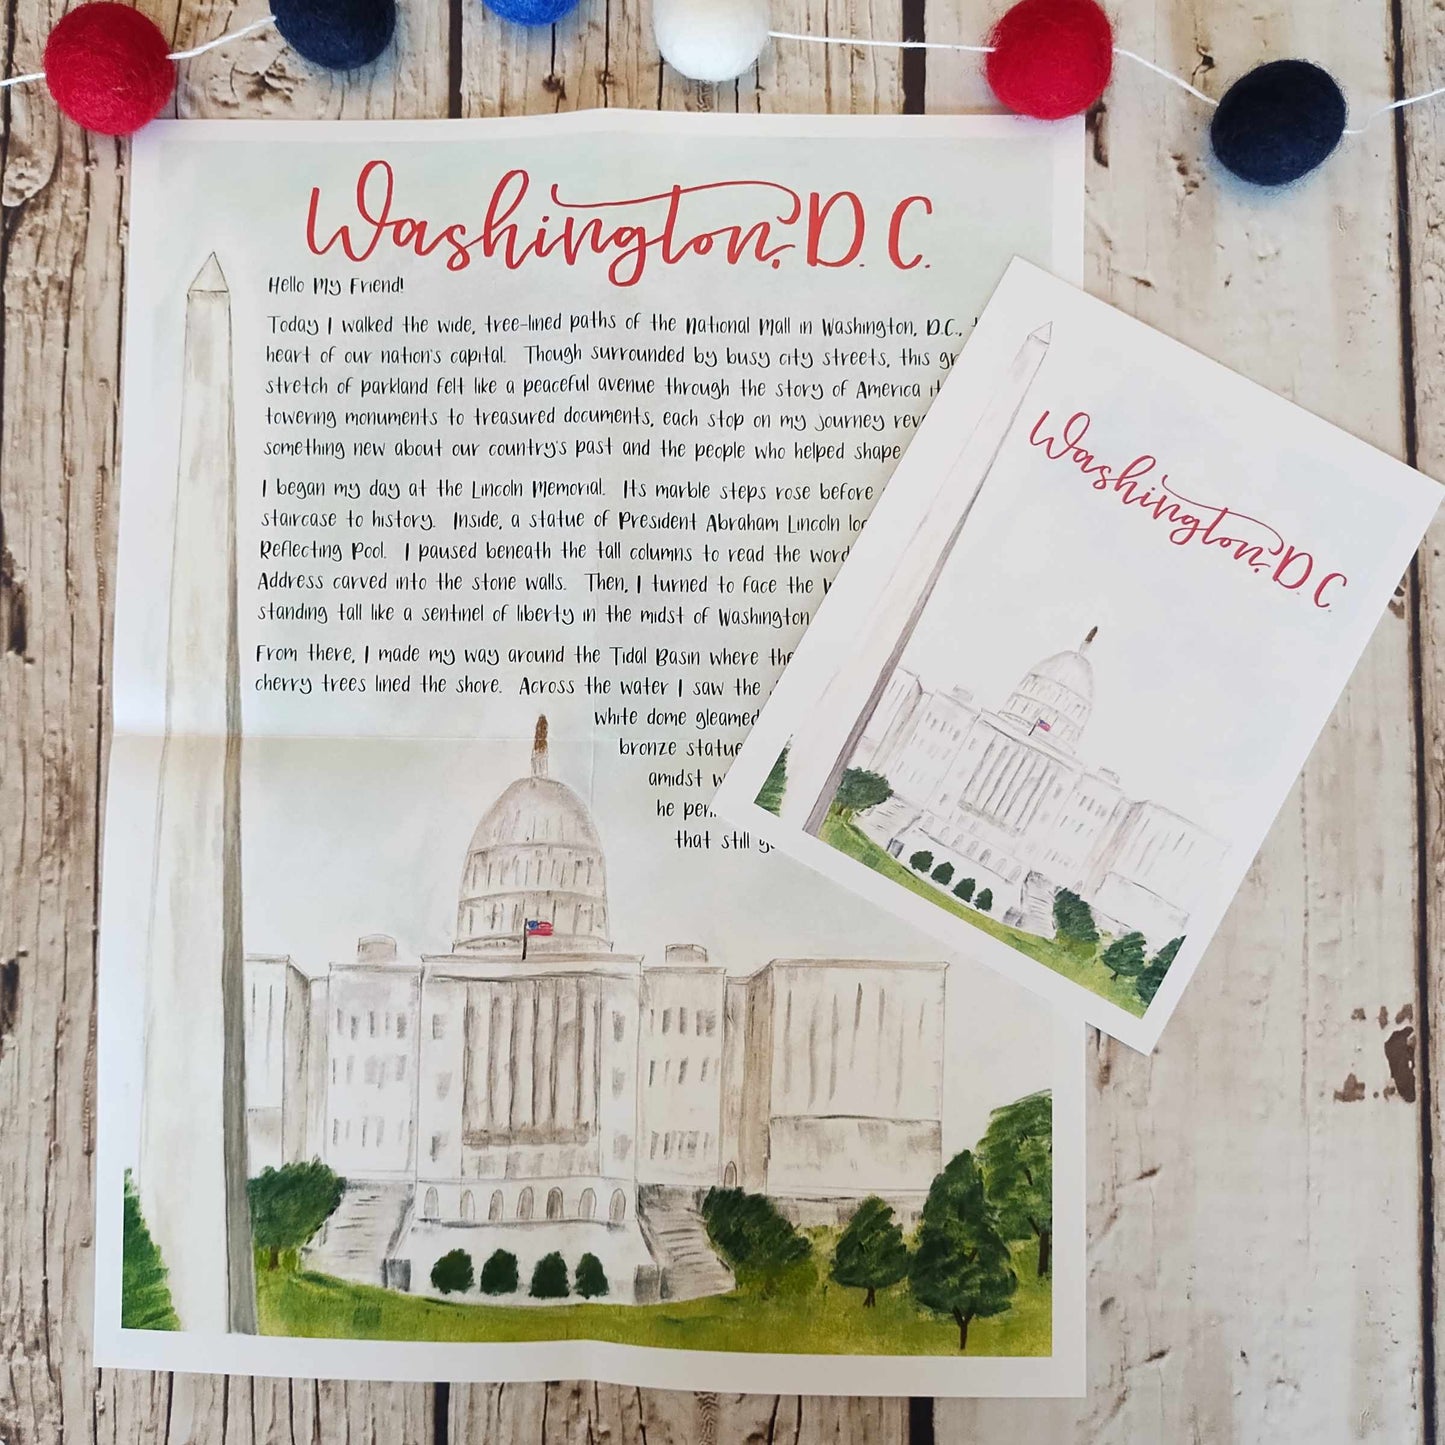 Washington, D.C.
Hello My Friend!
Today I walked the wide, tree-lined paths of the National Mall in Washington, D.C.,
heart of our nation's capital. Though surrounded by busy city streets, this
stretch of parkland felt like a peaceful avenue through the story of America
towering monuments to treasured documents, each stop on my journey
something new about our country's past and the people who helped shape
I began my day at the Lincoln Memorial. Its marble steps rose before
staircase to history. Inside, a statue of President Abraham Lincoln
Reflecting Pool. I paused beneath the tall columns to read the
Address carved into the stone walls. Then, I turned to face the
standing tall like a sentinel of liberty in the midst of Washington
From there, I made my way around the Tidal Basin where
cherry trees lined the shore. Across the water I saw the
white dome gleamed
bronze
amidst
he
that still
Washington, D.C.